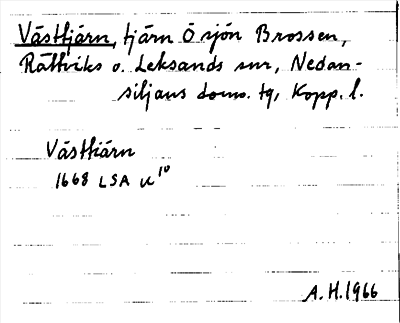 Västtjärn, tjärn Ö sjön Brossen,
Rättviks o. Leksands snr, Nedan-
siljans doms. tg, Kopp. l.
Västtiärn
1668 LSA U 10
A.H. 1966